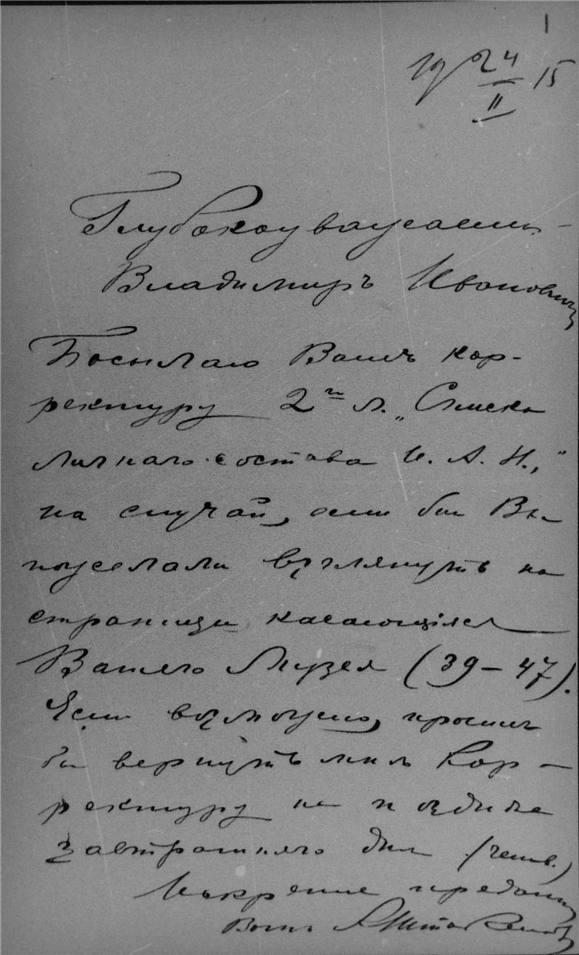 1
19 24/II 15
Глубокоуважаемый
Владимиръ Ивановичъ
Посылаю Вамъ кор-
ректуру 2го л. „Списка
личнаго состава И. А. Н.,"
на случай, если бы Вы
пожелали взглянуть на
страницы касающіяся
Вашего Музея (39–47).
Если возможно, просилъ
бы вернуть мнѣ кор-
ректуру не позднѣе
завтрашняго дня (четв.)
Искренне преданный
Вамъ